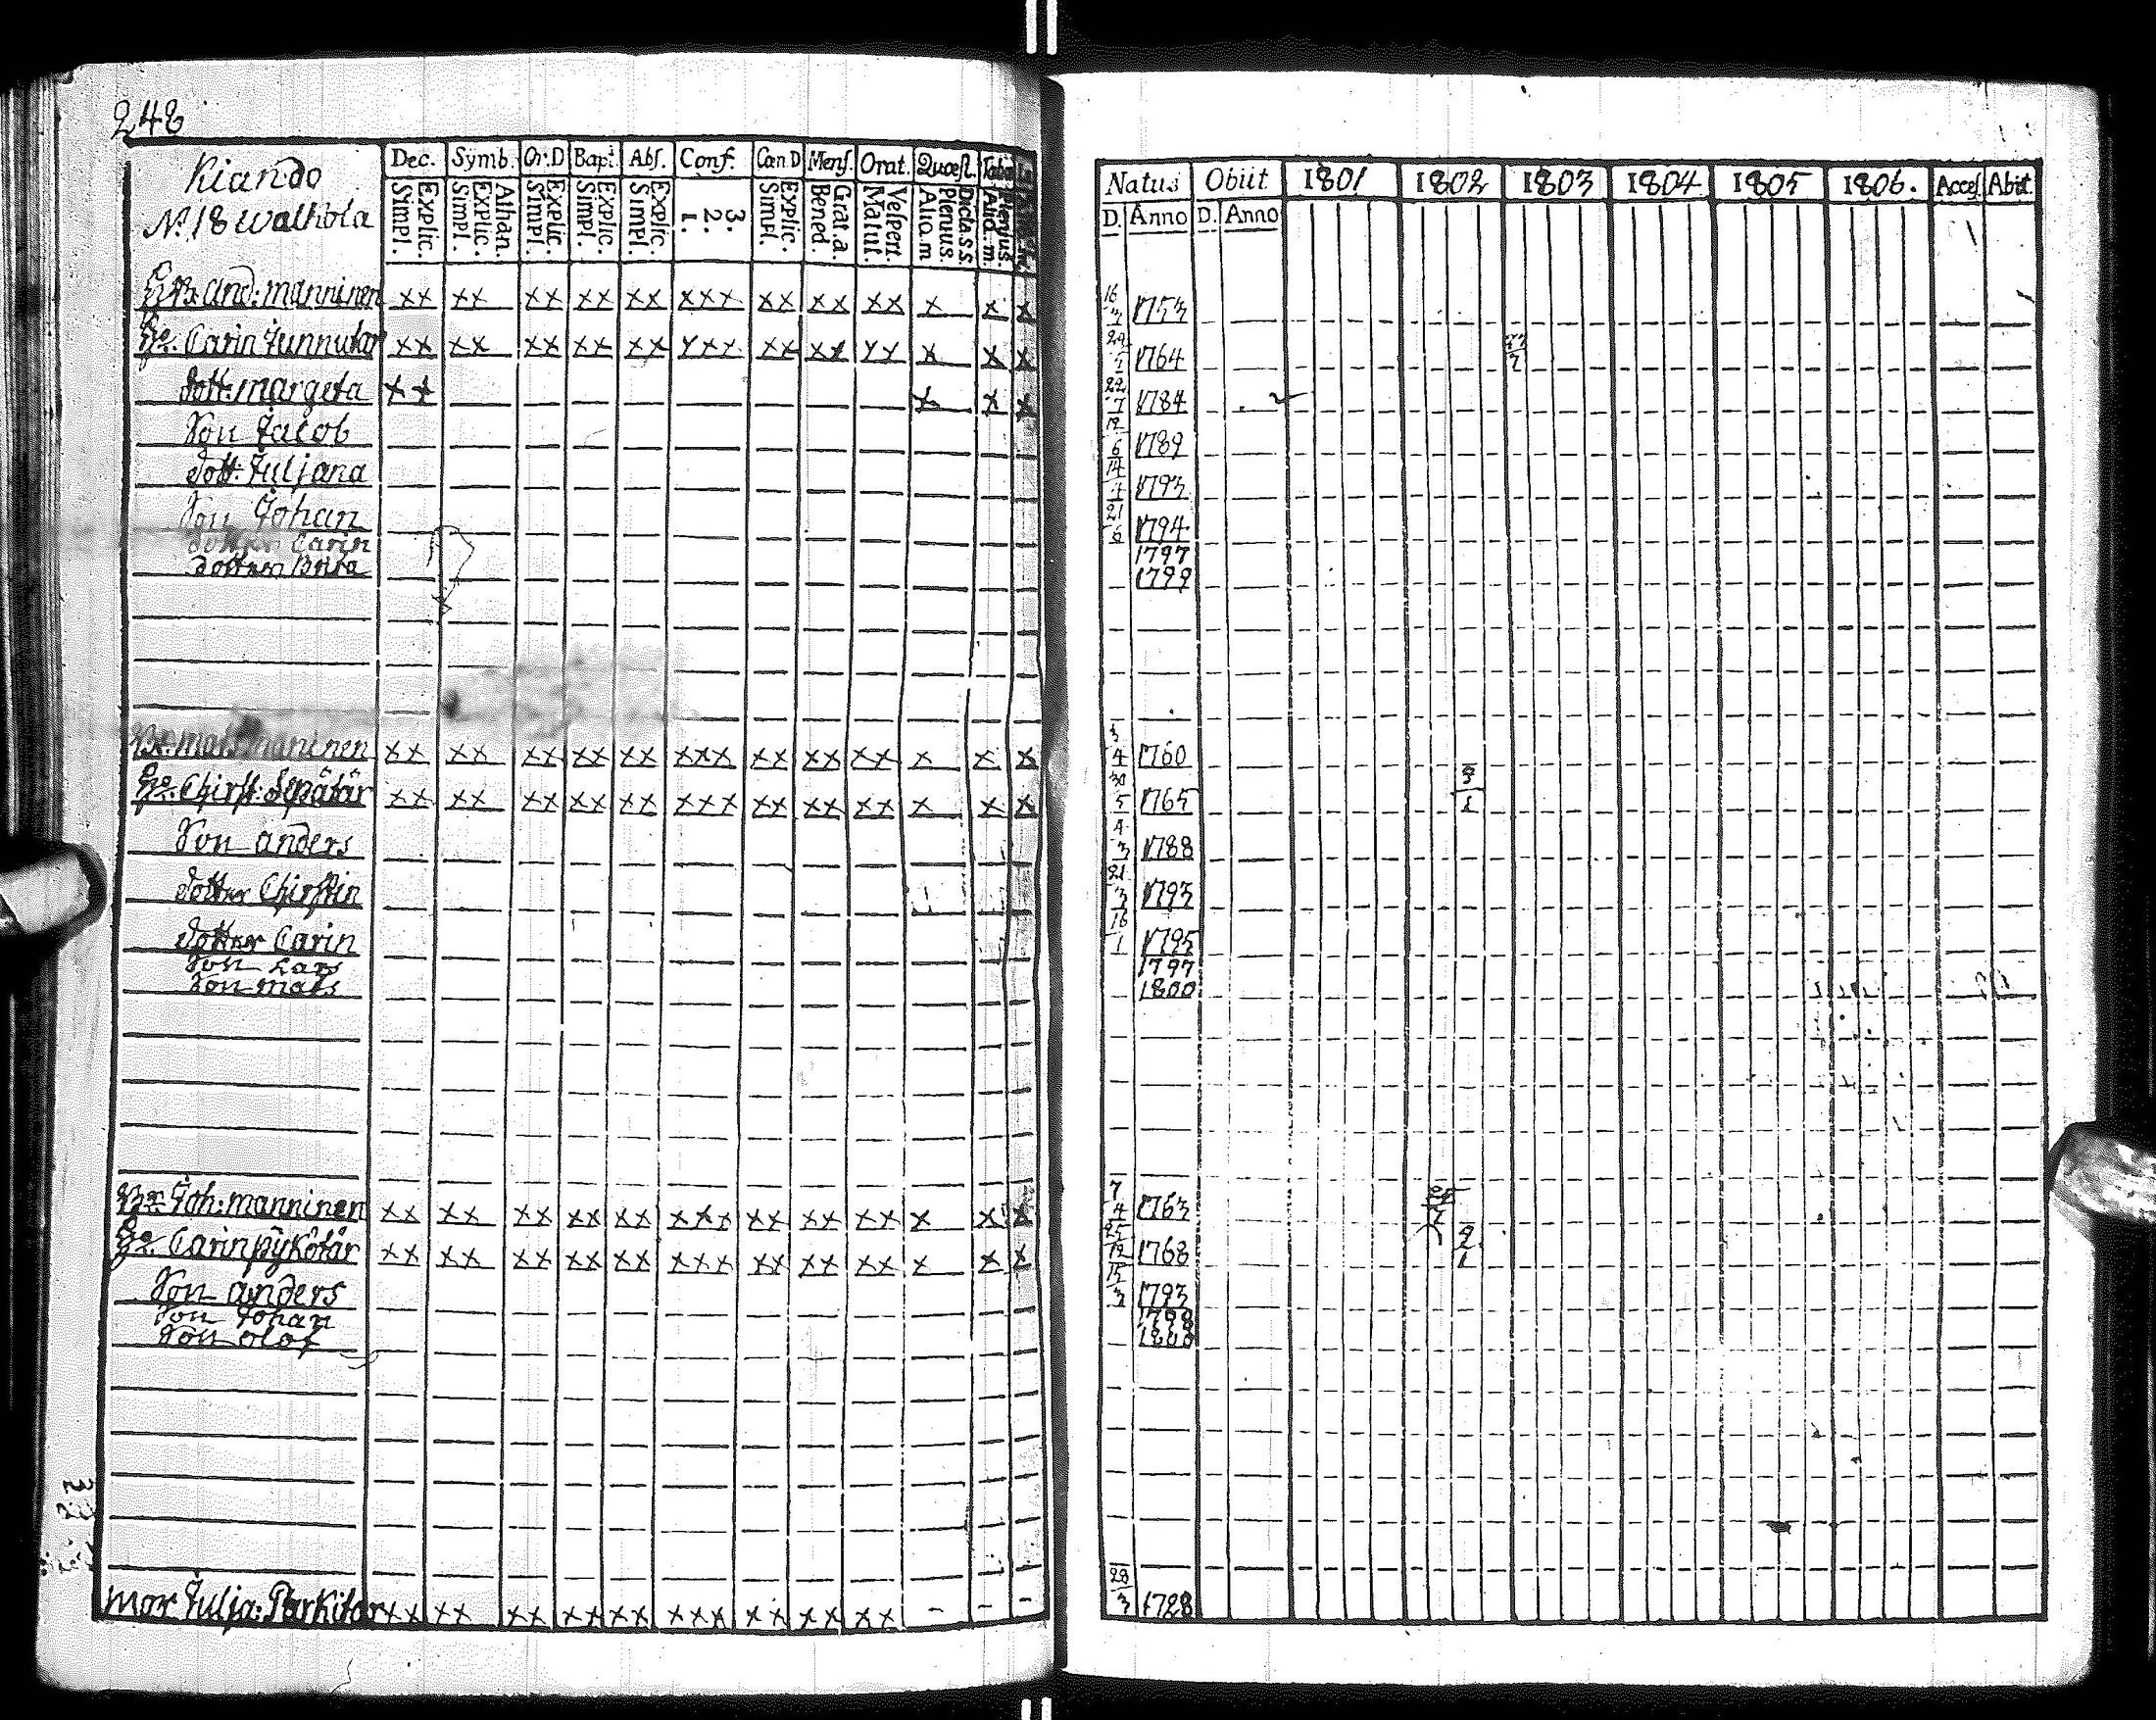 248
Kiando
N.º 18 Walkola
Dec. Symb. Or.D Bapt. Abs. Conf. Can.D Mens. Orat. Quæst. Taba
Explic. Simpl. Athan. Explic. Simpl. Explic. Simpl. Explic. Simpl. Explic. Simpl. 3. 2. 1. Explic. Simpl. Grat.a. Bened. Vespert. Matut. Dicta.S.S. Plenius. Aliq.m Plenius. Aliq.m.
Natus Obiit 1801 1802 1803 1804 1805 1806. Acces. Abiit
D. Anno D. Anno
And: Manninen xx xx xx xx xx xxx xx xx xx x x x 16 3 1753
Carin Tunnutar xx xx xx xx xx xxx xx xx xx x x x 1764
dott: Margeta xx x x x 22 7 1784
Son Jacob 12 6 1789
dott: Juljana 14 1793
Son Johan 21 6 1794
dotter Carin 1797
dotter Brita 1799
Mats Maninen xx xx xx xx xx xxx xx xx xx x x x 3 4 1760
Chirst: Sepätär xx xx xx xx xx xxx xx xx xx x x x 30 5 1765
Son Anders 4 3 1788
dotter Chirstin 21 3 1793
dotter Carin 16 1 1795
Son Lars 1797
Son Mats 1800
Joh: Manninen xx xx xx xx xx xxx xx xx xx x x x 7 4 1763
Carin Pykötär xx xx xx xx xx xxx xx xx xx x x x 25 12 1768
Son Anders 15 3 1793
Son Johan 1798
Son Olof 1800
Mor Julja: Parkitar xx xx xx xx xx xxx xx xx xx - - - 28 3 1728